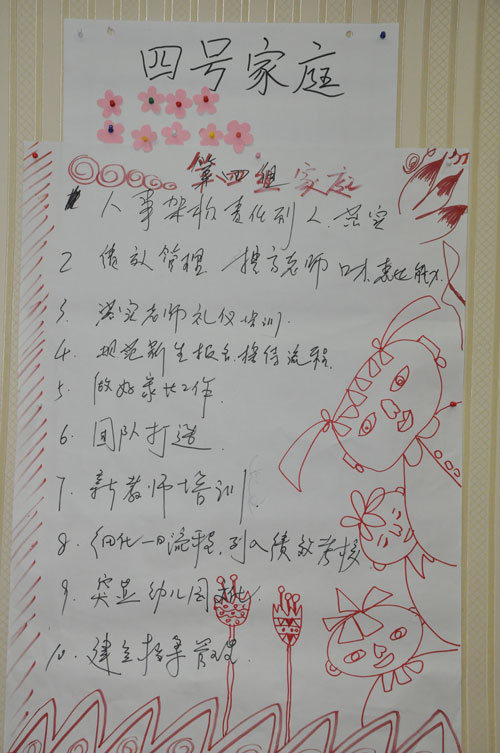 四号家庭
第四组家庭
1 人事架构责任到人.落实
2 绩效管理 提高老师口才表达能力
3. 落实老师礼仪培训.
4. 规范新生报名接待流程.
5. 做好家长工作.
6. 团队打造
7. 新教师培训
8. 细化一日流程,列入绩效考核
9. 突显幼儿园
10. 建立 管理